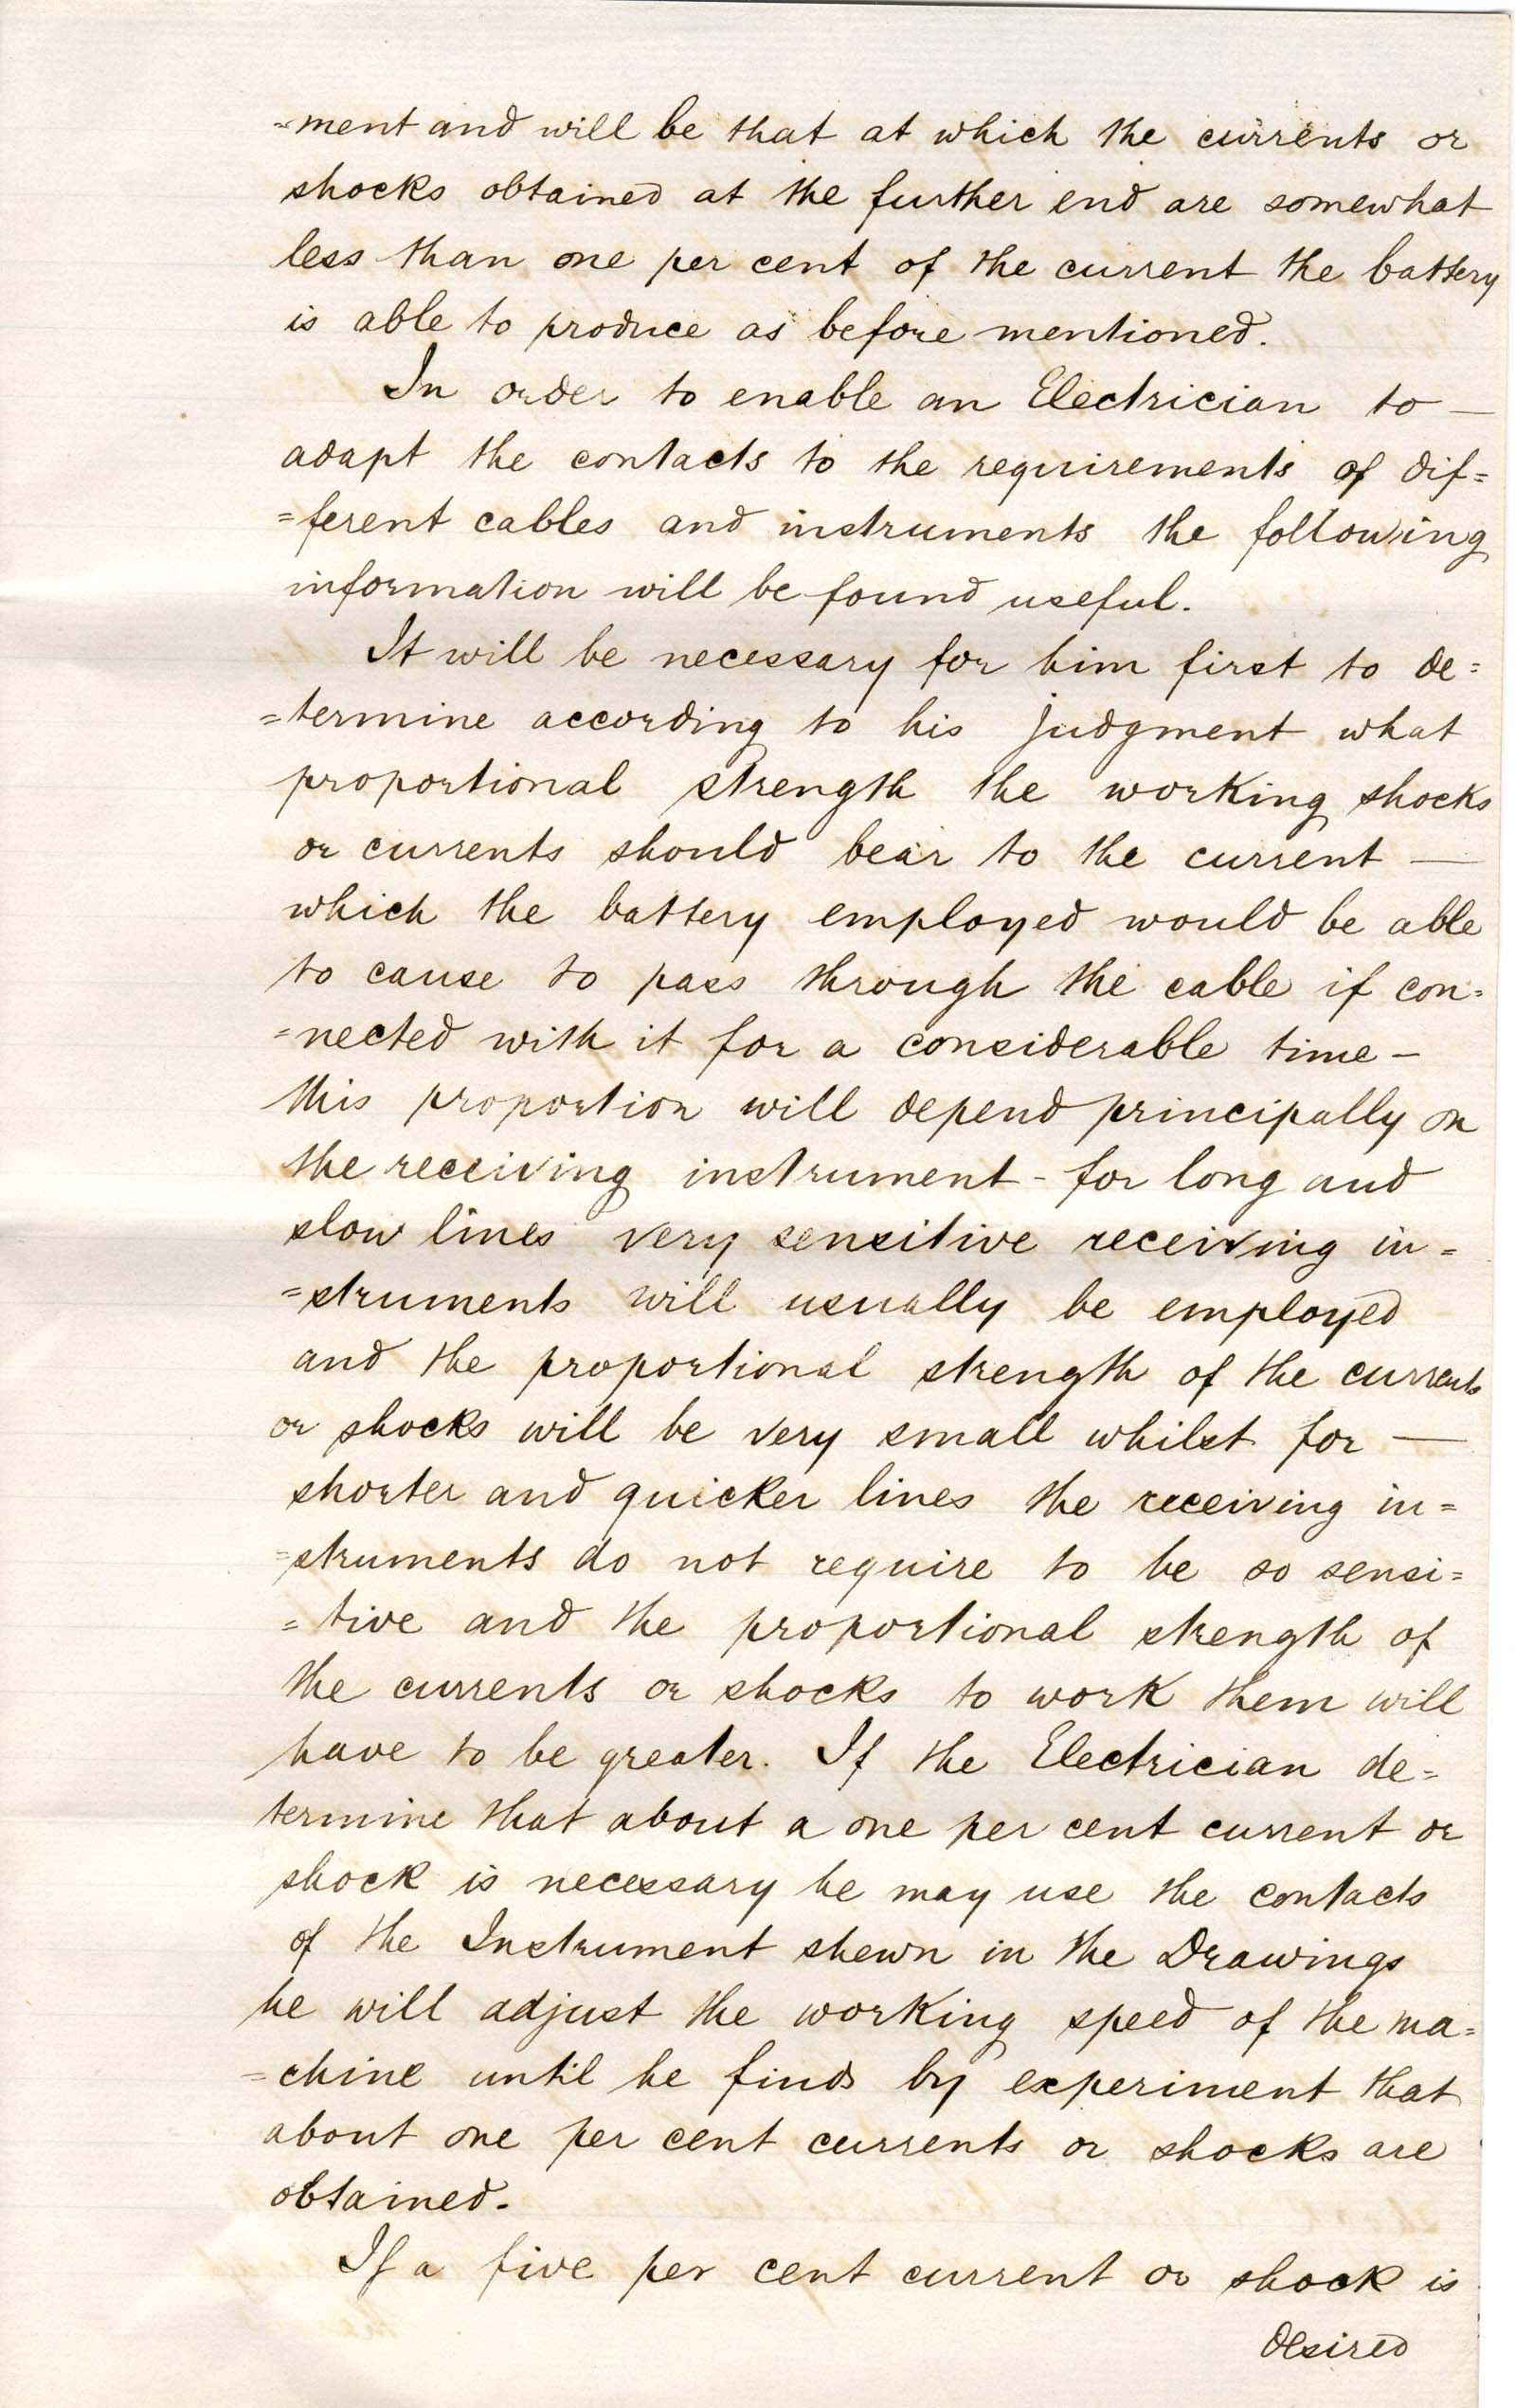 =ment and will be that at which the currents or
shocks obtained at the further end are somewhat
less than one per cent of the current the battery
is able to produce as before mentioned.
In order to enable an Electrician to —
adapt the contacts to the requirements of dif=
=ferent cables and instruments the following
information will be found useful.
It will be necessary for him first to de=
=termine according to his judgment what
proportional strength the working shocks
or currents should bear to the current —
which the battery employed would be able
to cause to pass through the cable if con=
=nected with it for a considerable time —
this proportion will depend principally on
the receiving instrument - for long and
slow lines very sensitive receiving in=
=struments will usually be employed
and the proportional strength of the currents
or shocks will be very small whilst for —
shorter and quicker lines the receiving in=
=struments do not require to be so sensi=
=tive and the proportional strength of
the currents or shocks to work them will
have to be greater. If the Electrician de=
termine that about a one per cent current or
shock is necessary he may use the contacts
of the Instrument shewn in the Drawings
he will adjust the working speed of the ma=
=chine until he finds by experiment that
about one per cent currents or shocks are
obtained.
If a five per cent current or shock is
desired